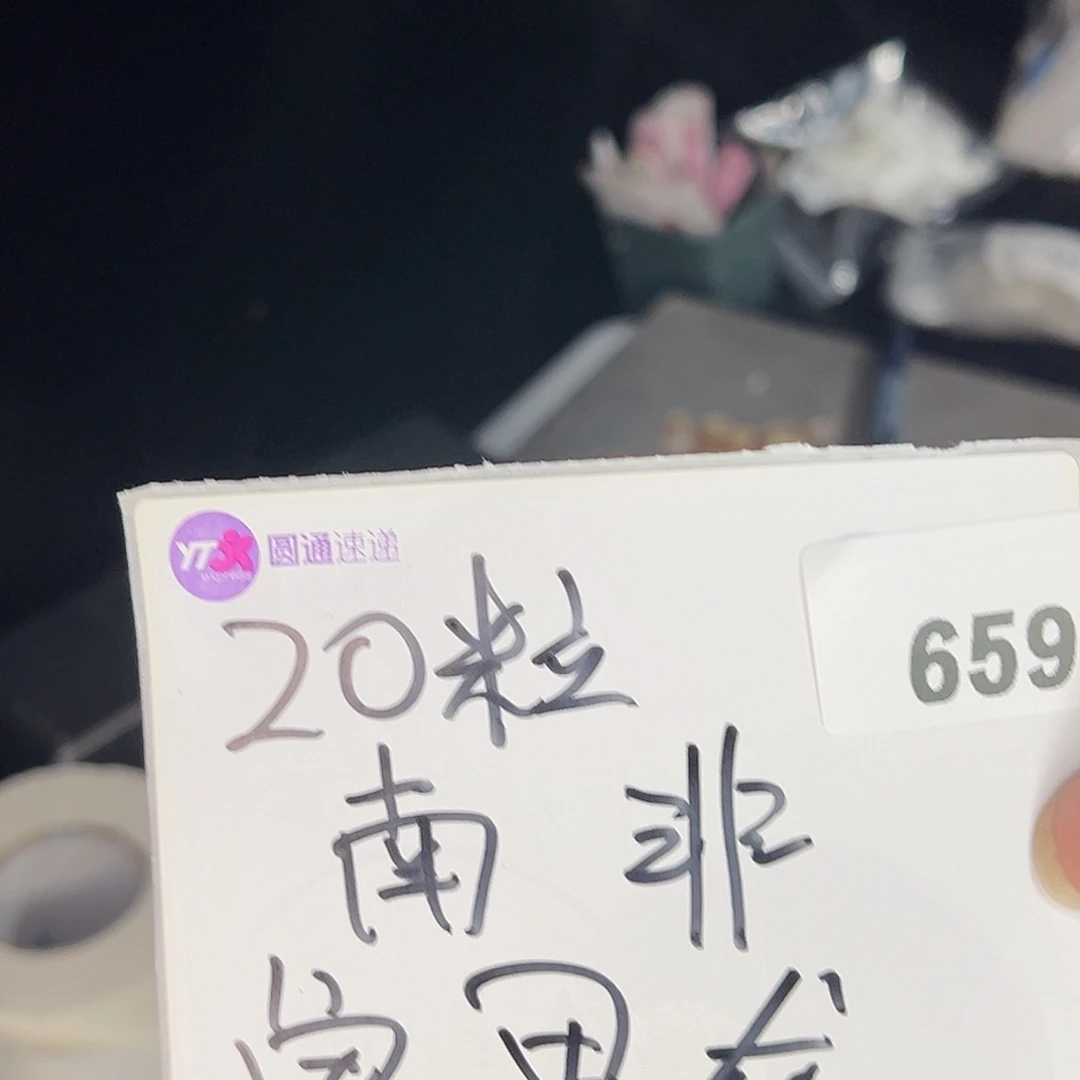 YTO express 圆通速递
659
20粒
南非